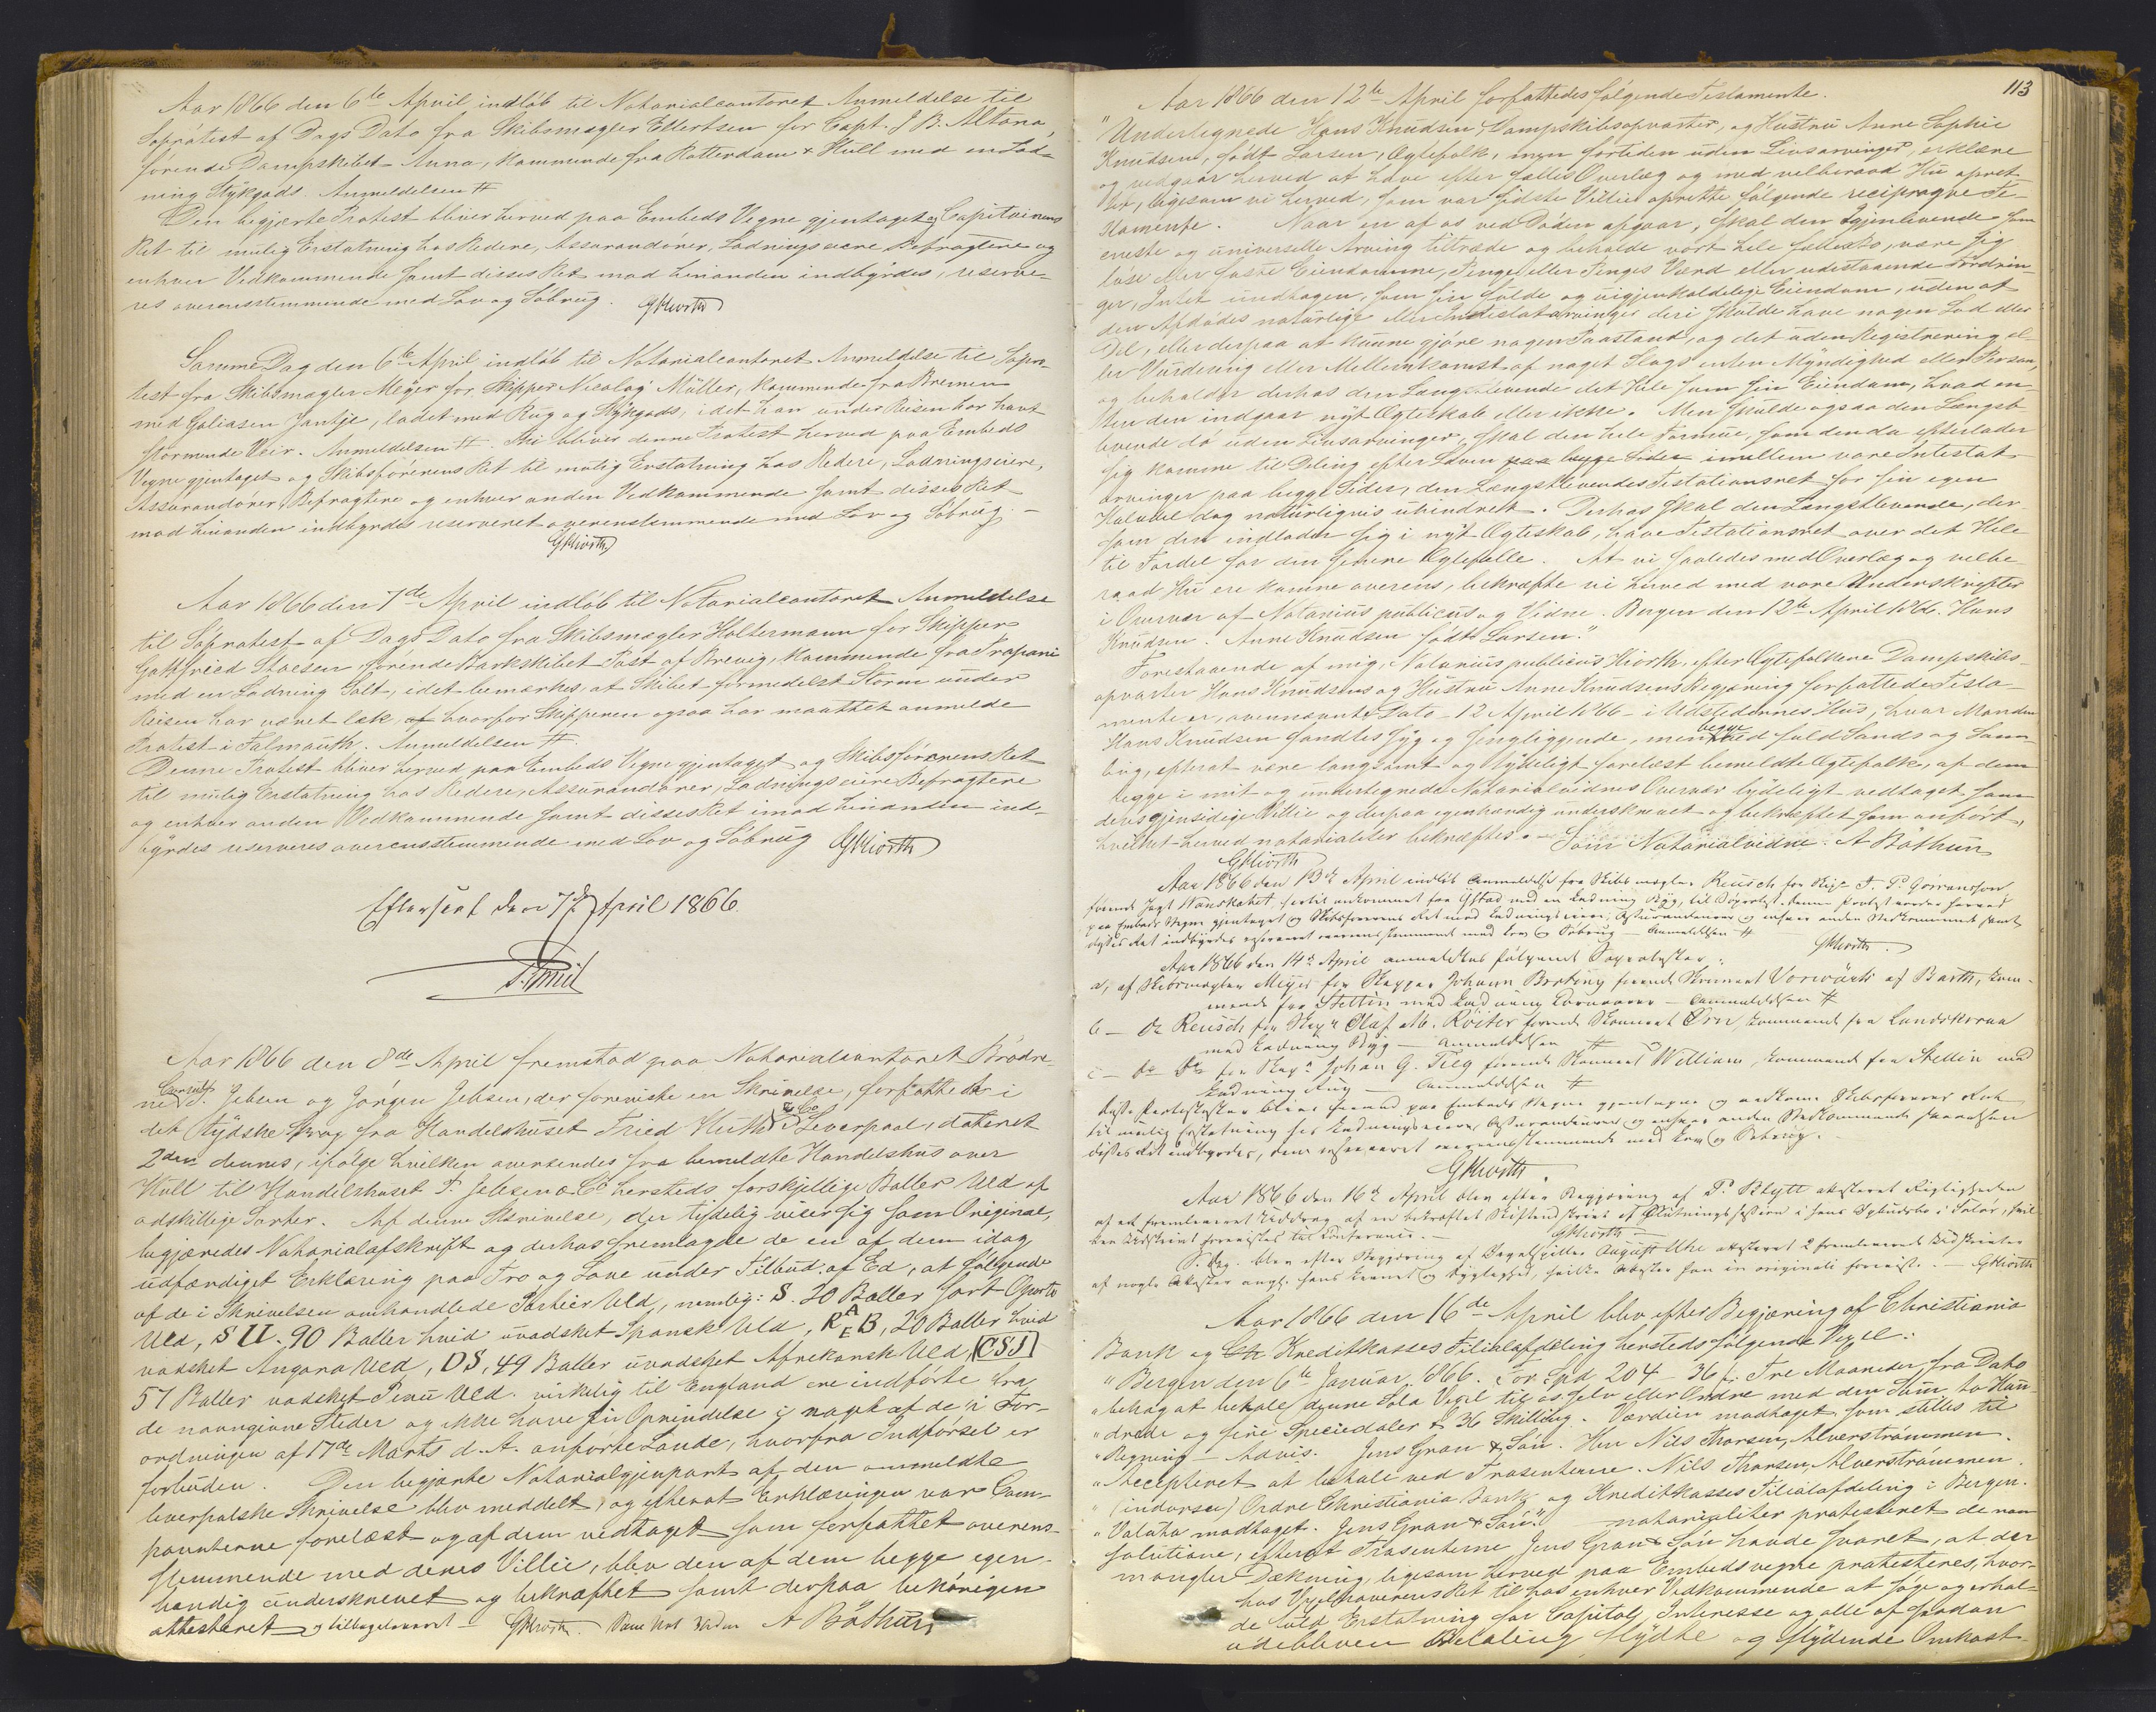 Aar 1866 den 6te April indløb til Notarialcontoret Anmeldelse til
Søprotest af Dags Dato fra Skibsmægler Ellertsen for Capt. J B. Altona,
førende Dampskibet Anna, kommende fra Rotterdam & Hull med en Lad-
ning Stykgods. Anmeldelsen #
Den begjærte Protest bliver herved paa Embeds Vegne gjentaget og Capitainens
Ret til mulig Erstatning hos Redere, Assurandører, Ladningseiere Befragtere og
enhver Vedkommende samt disses Ret mod hinanden indbyrdes, reserve-
res overensstemmende med Lov og Søbrug. GHiorth
Samme Dag den 6te April indløb til Notarialcontoret Anmeldelse til Søpro-
test fra Skibsmægler Meyer for Skipper Nicolay Müller, kommende fra Bremen
med Galiasen Jantje, ladet med Rug og Stykgods, idet han under Reisen har havt
stormende Veir. Anmeldelsen #. Thi bliver denne Protest herved paa Embeds
Vegne gjentaget og Skibsførerens Ret til mulig Erstatning hos Redere, Ladningseiere,
Assurandører, Befragtere og enhver anden Vedkommende samt disses Ret
mod hinanden indbyrdes reserveret overensstemmende med Lov og Søbrug. -
GHiorth
Aar 1866 den 7de April indløb til Notarialcontoret Anmeldelse
til Søprotest af Dags Dato fra Skibsmægler Holtermann for Skipper
Gottfried Stoesen, førende Barkskibet Post af Brevig, kommende fra Trapani
med en Ladning Salt, idet bemærkes, at Skibet formedelst Storm under
Reisen har været læk, af hvorfor Skipperen ogsaa har maattet anmelde
Protest i Falmouth. Anmeldelsen #.
Denne Protest bliver herved paa Embeds Vegne gjentaget og Skibsførerens Ret
til mulig Erstatning hos Redere, Assurandører, Ladningseiere Befragtere
og enhver anden Vedkommende samt disses Ret imod hinanden ind-
byrdes reserveres overensstemmende med Lov og Søbrug GHiorth
Efterseet den 7de April 1866.
Aar 1866 den 8de April fremstod paa Notarialcontoret Brødre-
ne Consul P. Jebsen og Jørgen Jebsen, der foreviste en Skrivelse, forfattet i
det tydske Sprog fra Handelshuset Fried Huth & Co i Liverpool, dateret
2den dennes, ifølge hvilken oversendes fra bemeldte Handelshus over
Hull til Handelshuset P. Jebsen & Co hersteds forskjellige Baller Uld af
adskillige Sorter. Af denne Skrivelse, der tydelig viser sig som Original,
begjæredes Notarialafskrift og derhos fremlagde de en af dem idag
udfærdiget Erklæring paa Tro og Love under Tilbud af Ed, at følgende
af de i Skrivelsen omhandlede Partier Uld, nemlig: S. 20 Baller sort Oporto
Uld, S II. 90 Baller hvid uvadsket Spansk Uld, R A E B, 20 Baller hvid
vadsket Angora Uld, DS, 49 Baller uvadsket Afrekansk Uld, CSJ
57 Baller vadsket Peru Uld. virkelig til England ere indførte fra
de navngivne Steder og ikke have sin Oprindelse i noget af de i For-
ordningen af 17de Marts d. A. anførte Lande, hvorfra Indførsel er
forbuden. Den begjærte Notarialgjenpart af den ommeldte
liverpolske Skrivelse blev meddelt, og efterat Erklæringen var Com-
parenterne forelæst og af dem vedtaget som forfattet overens-
stemmende med deres Villie, blev den af dem begge egen-
hændig underskrevet og bekræftet samt derpaa behørigen
attesteret og tilbageleveret - GHiorth. Som Not Vidne A Bøthun
113
Aar 1866 den 12te April forfattedes følgende Testamente.
"Undertegnede Hans Knudsen, Dampskibsopvarter, og Hustru Anne Sophie
Knudsen, født Larsen, Ægtefolk, men fortiden uden Livsarvinger, erklære
og vedgaar herved at have efter fælles Overlæg og med velberaad Hu opret-
tet, ligesom vi herved, som vor sidste Villie oprette følgende reciproque Te-
stamente. Naar en af os ved Døden afgaar, skal den Igjenlevende som
eneste og universelle Arving tiltræde og beholde vort hele Fællesbo, være sig
løse eller faste Eiendomme, Penge eller Penges Værd eller udestaaende Fordrin-
ger, Intet undtagen, som sin fulde og uigjenkaldelige Eiendom, uden at
den Afdødes naturlige eller Intestatarvinger deri skulde have nogen Lod eller
Del, eller derpaa at kunne gjøre nogen Paastand, og det uden Registrering el-
ler Vurdering eller Mellemkomst af noget Slags enten Myndighed eller Person,
og beholder derhos den Længstlevende det Hele som sin Eiendom, hvad en-
ten den indgaar nyt Ægteskab eller ikke. Men skulde ogsaa den Længst-
levende dø uden Livsarvinger, skal den hele Formue, som den da efterlader
sig komme til Deling efter Loven paa begge Sider imellem vore Intestat-
arvinger paa begge Sider, den Længstlevendes Testationsret for sin egen
Halvdel dog naturligvis uhindret. Derhos skal den Længstlevende, der-
som den indlader sig i nyt Ægteskab, have Testationsret over det Hele
til Fordel for den senere Ægtefælle. At vi saaledes med Overlæg og velbe-
raad Hu ere komne overens, bekræfte vi herved med vore Underskrifter
i Overvær af Notarius publicus og Vidne. Bergen den 12te April 1866. Hans
Knudsen. Anne Knudsen født Larsen."
Forestaaende af mig, Notarius publicus Hiorth, efter Ægtefolkene Dampskibs-
opvarter Hans Knudsens og Hustru Anne Knudsens Begjæring forfattede Testa-
mente er, ovennævnte Dato - 12 April 1866 - i Udstedernes Hus, hvor Manden
Hans Knudsen fandtes syg og sengliggende, men begge ved fuld Sands og Sam-
ling, efterat være langsomt og tydeligt forelæst bemeldte Ægtefolk, af dem
begge i mit og undertegnede Notarialvidnes Overvær lydeligt vedtaget som
deres gjensidige Villie og derpaa egenhændig underskrevet og bekræftet som anført,
hvilket herved notarialiter bekræftes. - Som Notarialvidne: A Bøthun
GHiorth
Aar 1866 den 13de April indløb Anmeldelse fra Skibsmægler Reusch for Skipr J. P. Gøransson,
førende Jagt Handkahet, hertil ankommet fra Ystad med en Ladning Byg, til Søprotest. Denne Protest vorder herved
paa Embeds Vegne gjentaget og Skibsførerens Ret mod Ladningseiere, Assurandeurer og enhver anden Vedkommende samt
disses Ret indbyrdes reserveret overensstemmende med Lov og Søbrug - Anmeldelsen #
GHiorth.
Aar 1866 den 14de April anmeldtes følgende Søprotester:
a, af Skibsmægler Meyer for Skipper Johann førende Skonnert Vorwärts af Barth, kom-
mende fra Stettin med Ladning Kornvarer - Anmeldelsen #
b - do Reusch for Skipr Olaf M. Röiter førende Skonnert Ørn, kommende fra Landskrona
med Ladning Byg - Anmeldelsen #
c - do do for Skipr Johan G. Tieg førende Skonnert William, kommende fra Stettin med
Ladning Rug - Anmeldelsen #
disse Protester blive herved paa Embeds Vegne gjentagne og vedkomm. Skibsføreres Ret
til mulig Erstatning hos Ladningseiere, Assurandeurer og enhver anden Vedkommende
disses Ret indbyrdes, reserveret overensstemmende med Lov og Søbrug.
GHiorth
Aar 1866 den 16de April blev efter Begjæring af P. Blytt attesteret Rigtigheden
af et fremleveret Uddrag af en bekræftet Udskrift af Slutningssession i hans i Solør, hvil-
ken Udskrift forevistes til Conference. - GHiorth
S. D. blev efter Begjæring af August Uhe attesteret 2 fremleverede Udskrifter
af nogle Attester angd. hans og Dygtighed, hvilke Attester han in originali foreviste. - GHiorth
Aar 1866 den 16de April blev efter Begjæring af Christiania
Bank og Kreditkasses Filialafdeling hersteds følgende Vexel:
"Bergen den 6te Januar 1866. For Spd 204 - 36 s. Tre Maaneder fra Dato
"behag at betale denne Sola Vexel til os selv eller Ordre med den Sum to Hun-
"drede og fire Speciedaler & 36 Skilling. Værdien modtaget, som stilles til
"Regning - Advis. Jens Gran & Søn. Herr Nils Thorsen, Alverstrømmen.
"Accepteret at betale ved Trasenterne. Nils Thorsen, Alverstrømmen.
"(indorsat) Ordre Christiania Bank og Kreditkasses Filialafdeling i Bergen.
"Valuta modtaget. Jens Gran & Søn." notarialiter protesteret de non
solutione, efterat Trasenterne Jens Gran & Søn havde svaret, at der
mangler Dækning, ligesom herved paa Embedsvegne protesteres, hvor-
hos Vexelhaverens Ret til hos enhver Vedkommende at søge og erhol-
de fuld Erstatning for Capital, Interesse og alle af saadan
udebleven Betaling flydte og flydende Omkost-